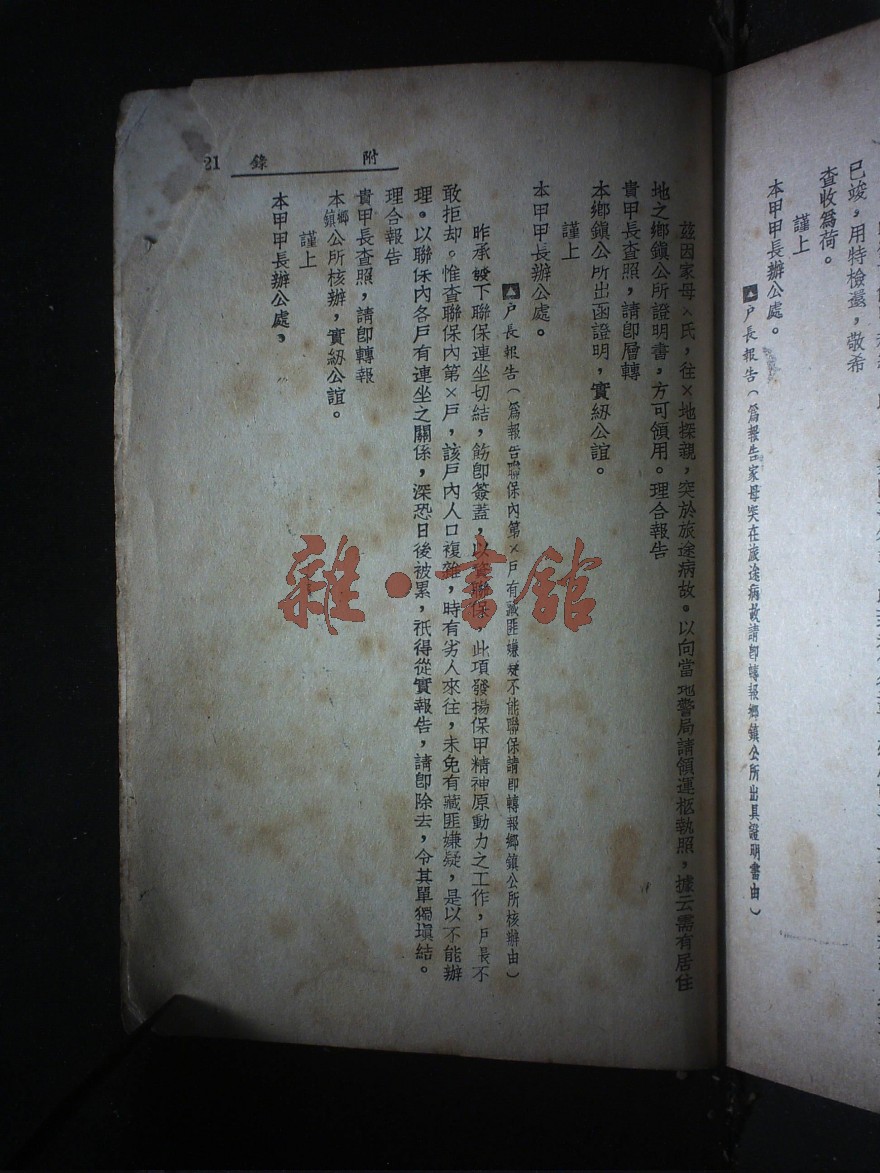 已竣，用特檢還，敬希
查收爲荷。
謹上
本甲甲長辦公處。
▲户長報告（爲報告家母突在旅途病故請卽轉報鄉鎮公所出具證明書由）
附錄 21
茲因家母×氏，往×地探親，突於旅途病故。以向當地警局請領運柩執照，據云需有居住
地之鄉鎮公所證明書，方可領用。理合報告
貴甲長查照，請卽層轉
本鄉鎮公所出函證明，實紉公誼。
謹上
本甲甲長辦公處。
▲户長報告（爲報告聯保內第×戶有藏匪嫌疑不能聯保請卽轉報鄉鎮公所核辦由）
昨承發下聯保連坐切結，飭卽簽蓋，以資聯保，此項發揚保甲精神原動力之工作，戶長不
敢拒却。惟查聯保內第×戶，該戶內人口複雜，時有劣人來往，未免有藏匪嫌疑，是以不能辦
理。以聯保內各戶有連坐之關係，深恐日後被累，祇得從實報告，請卽除去，令其單獨塡結。
理合報告
貴甲長查照，請卽轉報
本鄉鎮公所核辦，實紉公誼。
謹上
本甲甲長辦公處，
雜·書館